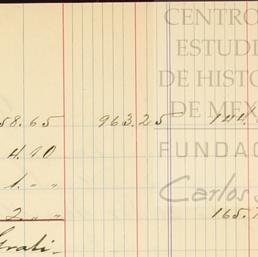 CENTRO
ESTUDI
DE HISTO
DE MEX
58.65 963.25 144.
4.90
FUNDAC
1. " "
Carlos S
2. " " 165.1
Grati-